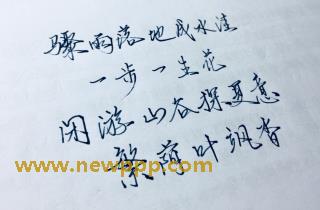 骤雨落地成水洼
一步一生花
闲游山谷探夏意
紫薇叶飒香
www.newppp.com